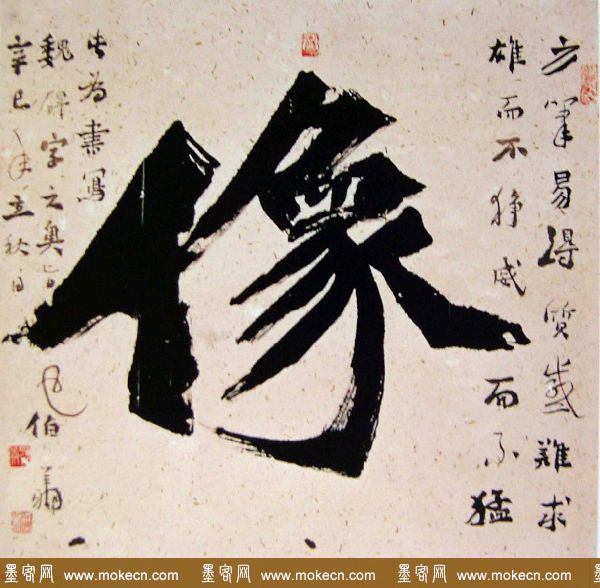 方筆易得質感難求
雄而不狰威而不猛
像
此為書寫
魏碑字之奥旨
辛巳年立秋日
伯
墨客网 www.mokecn.com 墨客网 www.mokecn.com 墨客网 www.mokecn.com